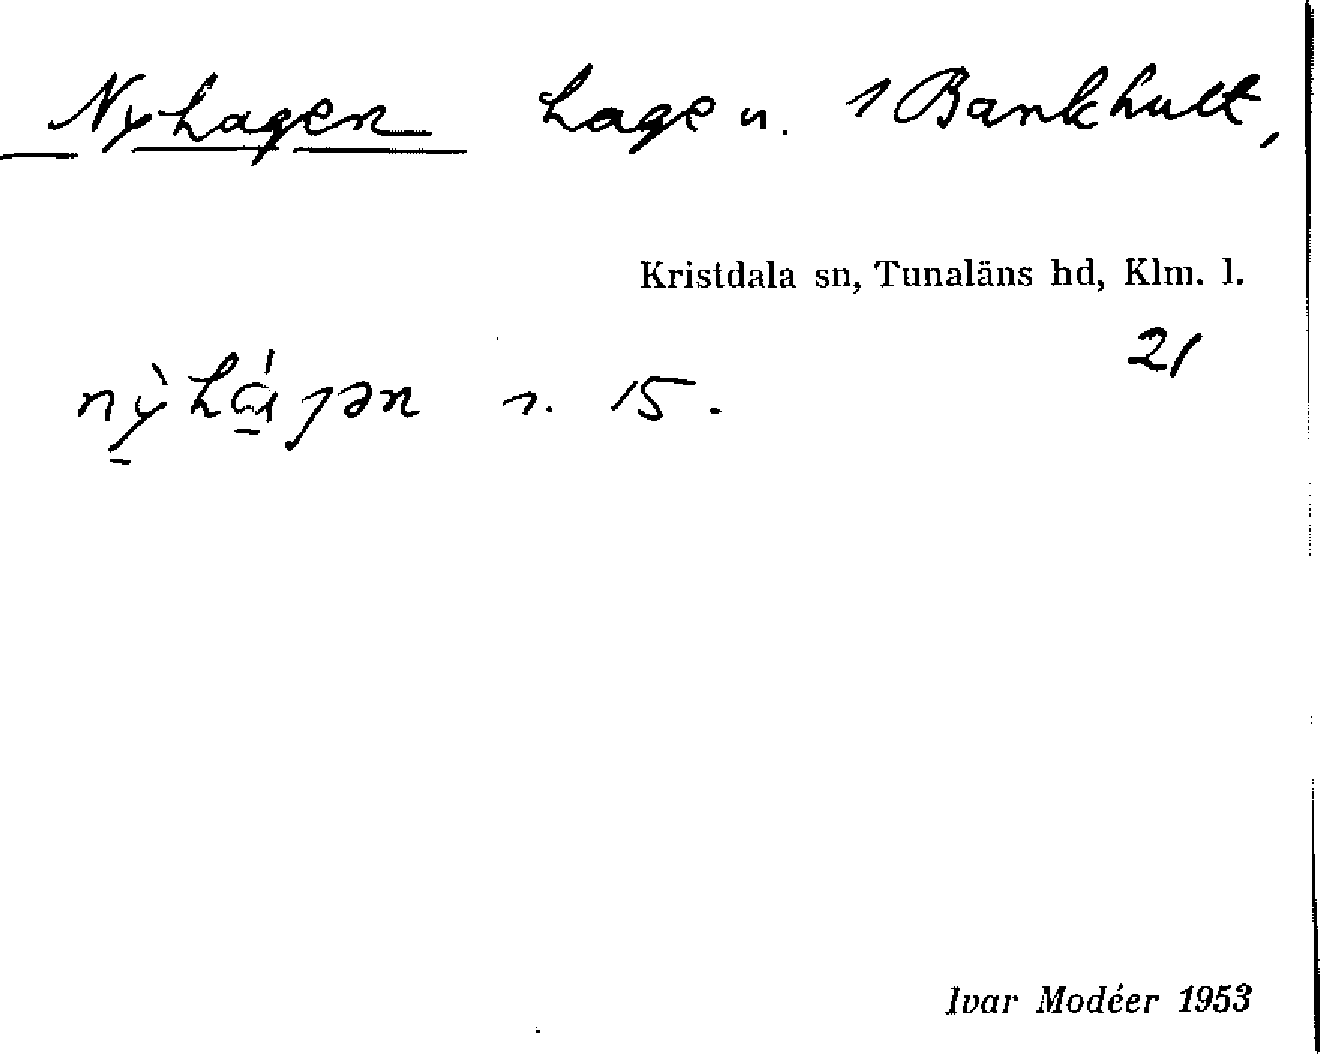 Nyhagen hage n. 1 Bankhult,
Kristdala sn, Tunaläns hd, Klm. l.
21
1. 15.
Ivar Modéer 1953